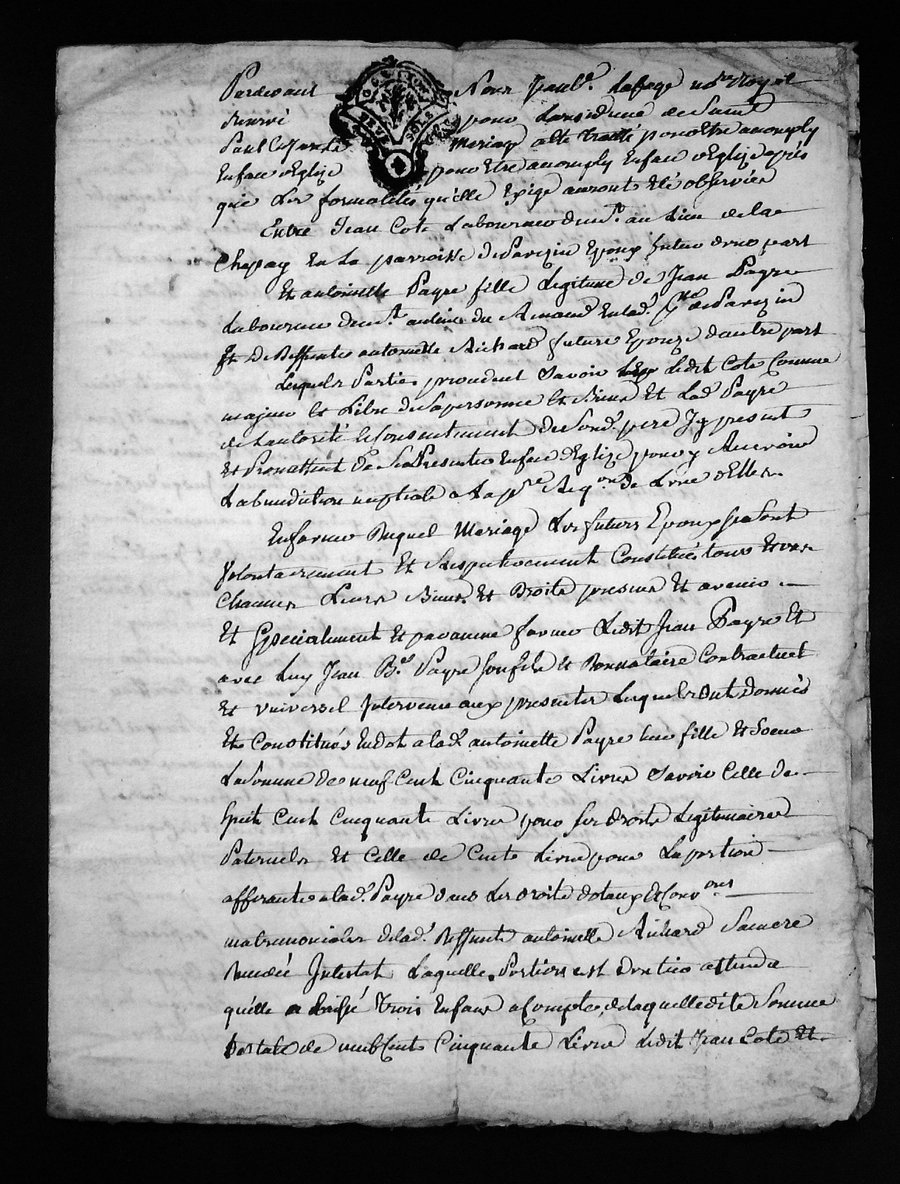 Pardevant Nous Paul Lafage no.re Royal
Paul Mariage a été traité pour être accomply
En face d'Eglize pour Etre accomply En face d'Eglize après
que Les formalités qu'elle Exige auront Eté observées
Entre Jean Cote Laboureur au Lieu de la
En La parroisse de Epoux futur d'une part
Et antoinette Payre fille Legitime de Jean Payre
Laboureur
Et De Deffuntte antoinette Richard future Epouze d'autre part
Lesquels Parties procedent Savoir Ledit Cote Comme
majeur et Libre de Sa personne Et Biens Et Lad. Payre
de L'autorité Et Consentement de Sond. pere Icy present
Et Promettent de Se Presenter En face d'Eglize pour y Recevoir
La benediction nuptiale a La p.re Req.on de L'une d'Elles
En faveur Duquel Mariage Les futurs Epoux se sont
volontairement Et Respectivement Constitués tous Et uns
Chacuns Leurs Biens Et Droits presens Et avenir
Et Specialement Et par même faveur Ledit Jean Payre Et
avec Luy Jean B.te Payre son fils Et Donnataire Contractuel
Et universel Intervenu aux presentes Lesquels ont donnés
Et Constitués En dot a lad. antoinette Payre leur fille Et Soeur
La Somme de neuf Cent Cinquante Livres Savoir Celle de
huit Cent Cinquante Livres pour ses droits Legitimaires
Paternels Et Celle de Cent Livres pour La portion
afferante a lad. Payre dans Les droits dotaux Et Conv.ons
matrimoniales de lad. Deffunte antoinette Richard Sa mere
Decedée Intestat Laquelle Portion est d'un tiers attendu
qu'elle a Laissé Trois Enfans a Compte de laquelle dite Somme
totale de neuf Cents Cinquante Livres Ledit Jean Cote Et